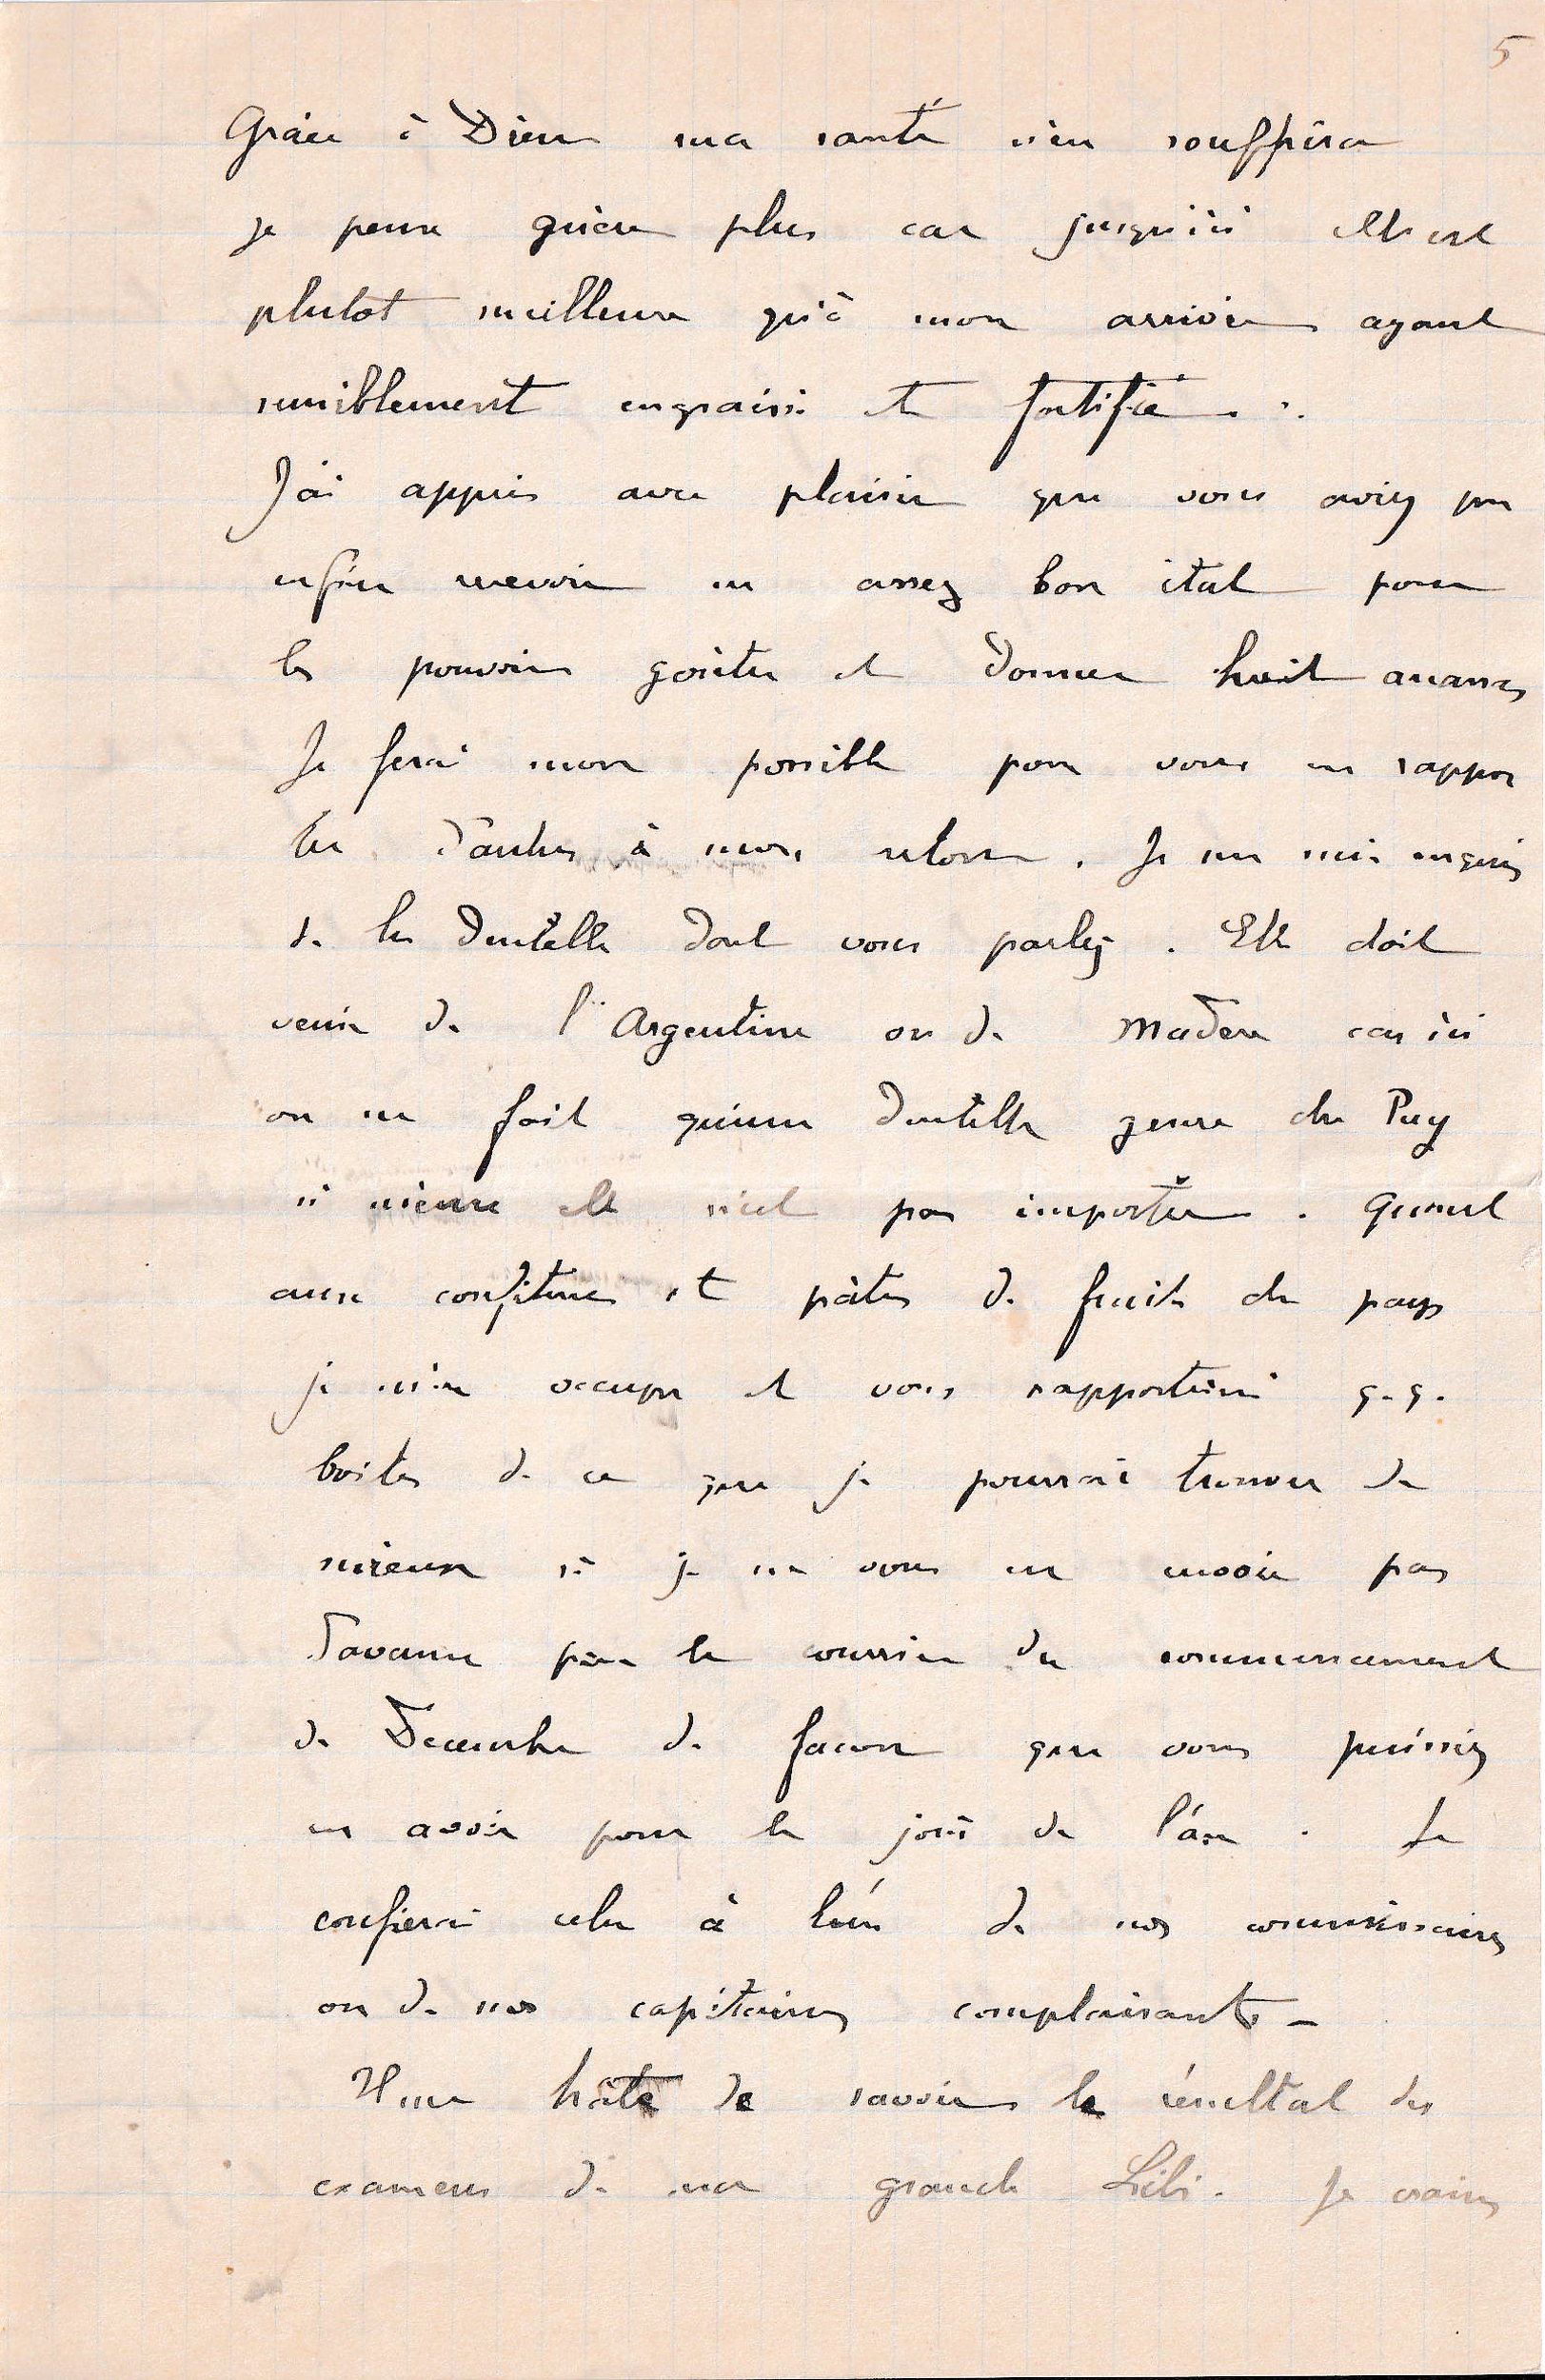 5
Grâce à Dieu ma santé n'en souffrira
je pense guère plus car jusqu'ici elle est
plutot meilleure qu'à mon arrivée ayant
sensiblement engraissé et fortifié . .
J'ai appris avec plaisir que vous aviez pu
enfin recevoir en assez bon état pour
les pouvoir goûter et donner huit ananas
Je ferai mon possible pour vous en rappor
ter d'autres à mon retour . Je me suis enquis
de la dentelle dont vous parlez . Elle doit
venir de l'Argentine ou de Madère car ici
on ne fait qu'une dentelle genre du Puy
si même elle n'est pas importée . Quant
aux confitures et pâtes de fruits du pays
je m'en occupe et vous rapporterai q.q.
boites de ce que je pourrai trouver de
mieux si je ne vous en envoie pas
d'avance par le courrier du commencement
de Décembre de facon que vous puissiez
en avoir pour le jour de l'an . Je
confierai cela à l'un de nos commissaires
ou de nos capitaines complaisants _
Il me hâte de savoir le résultat des
examens de ma grande Lili . Je crains